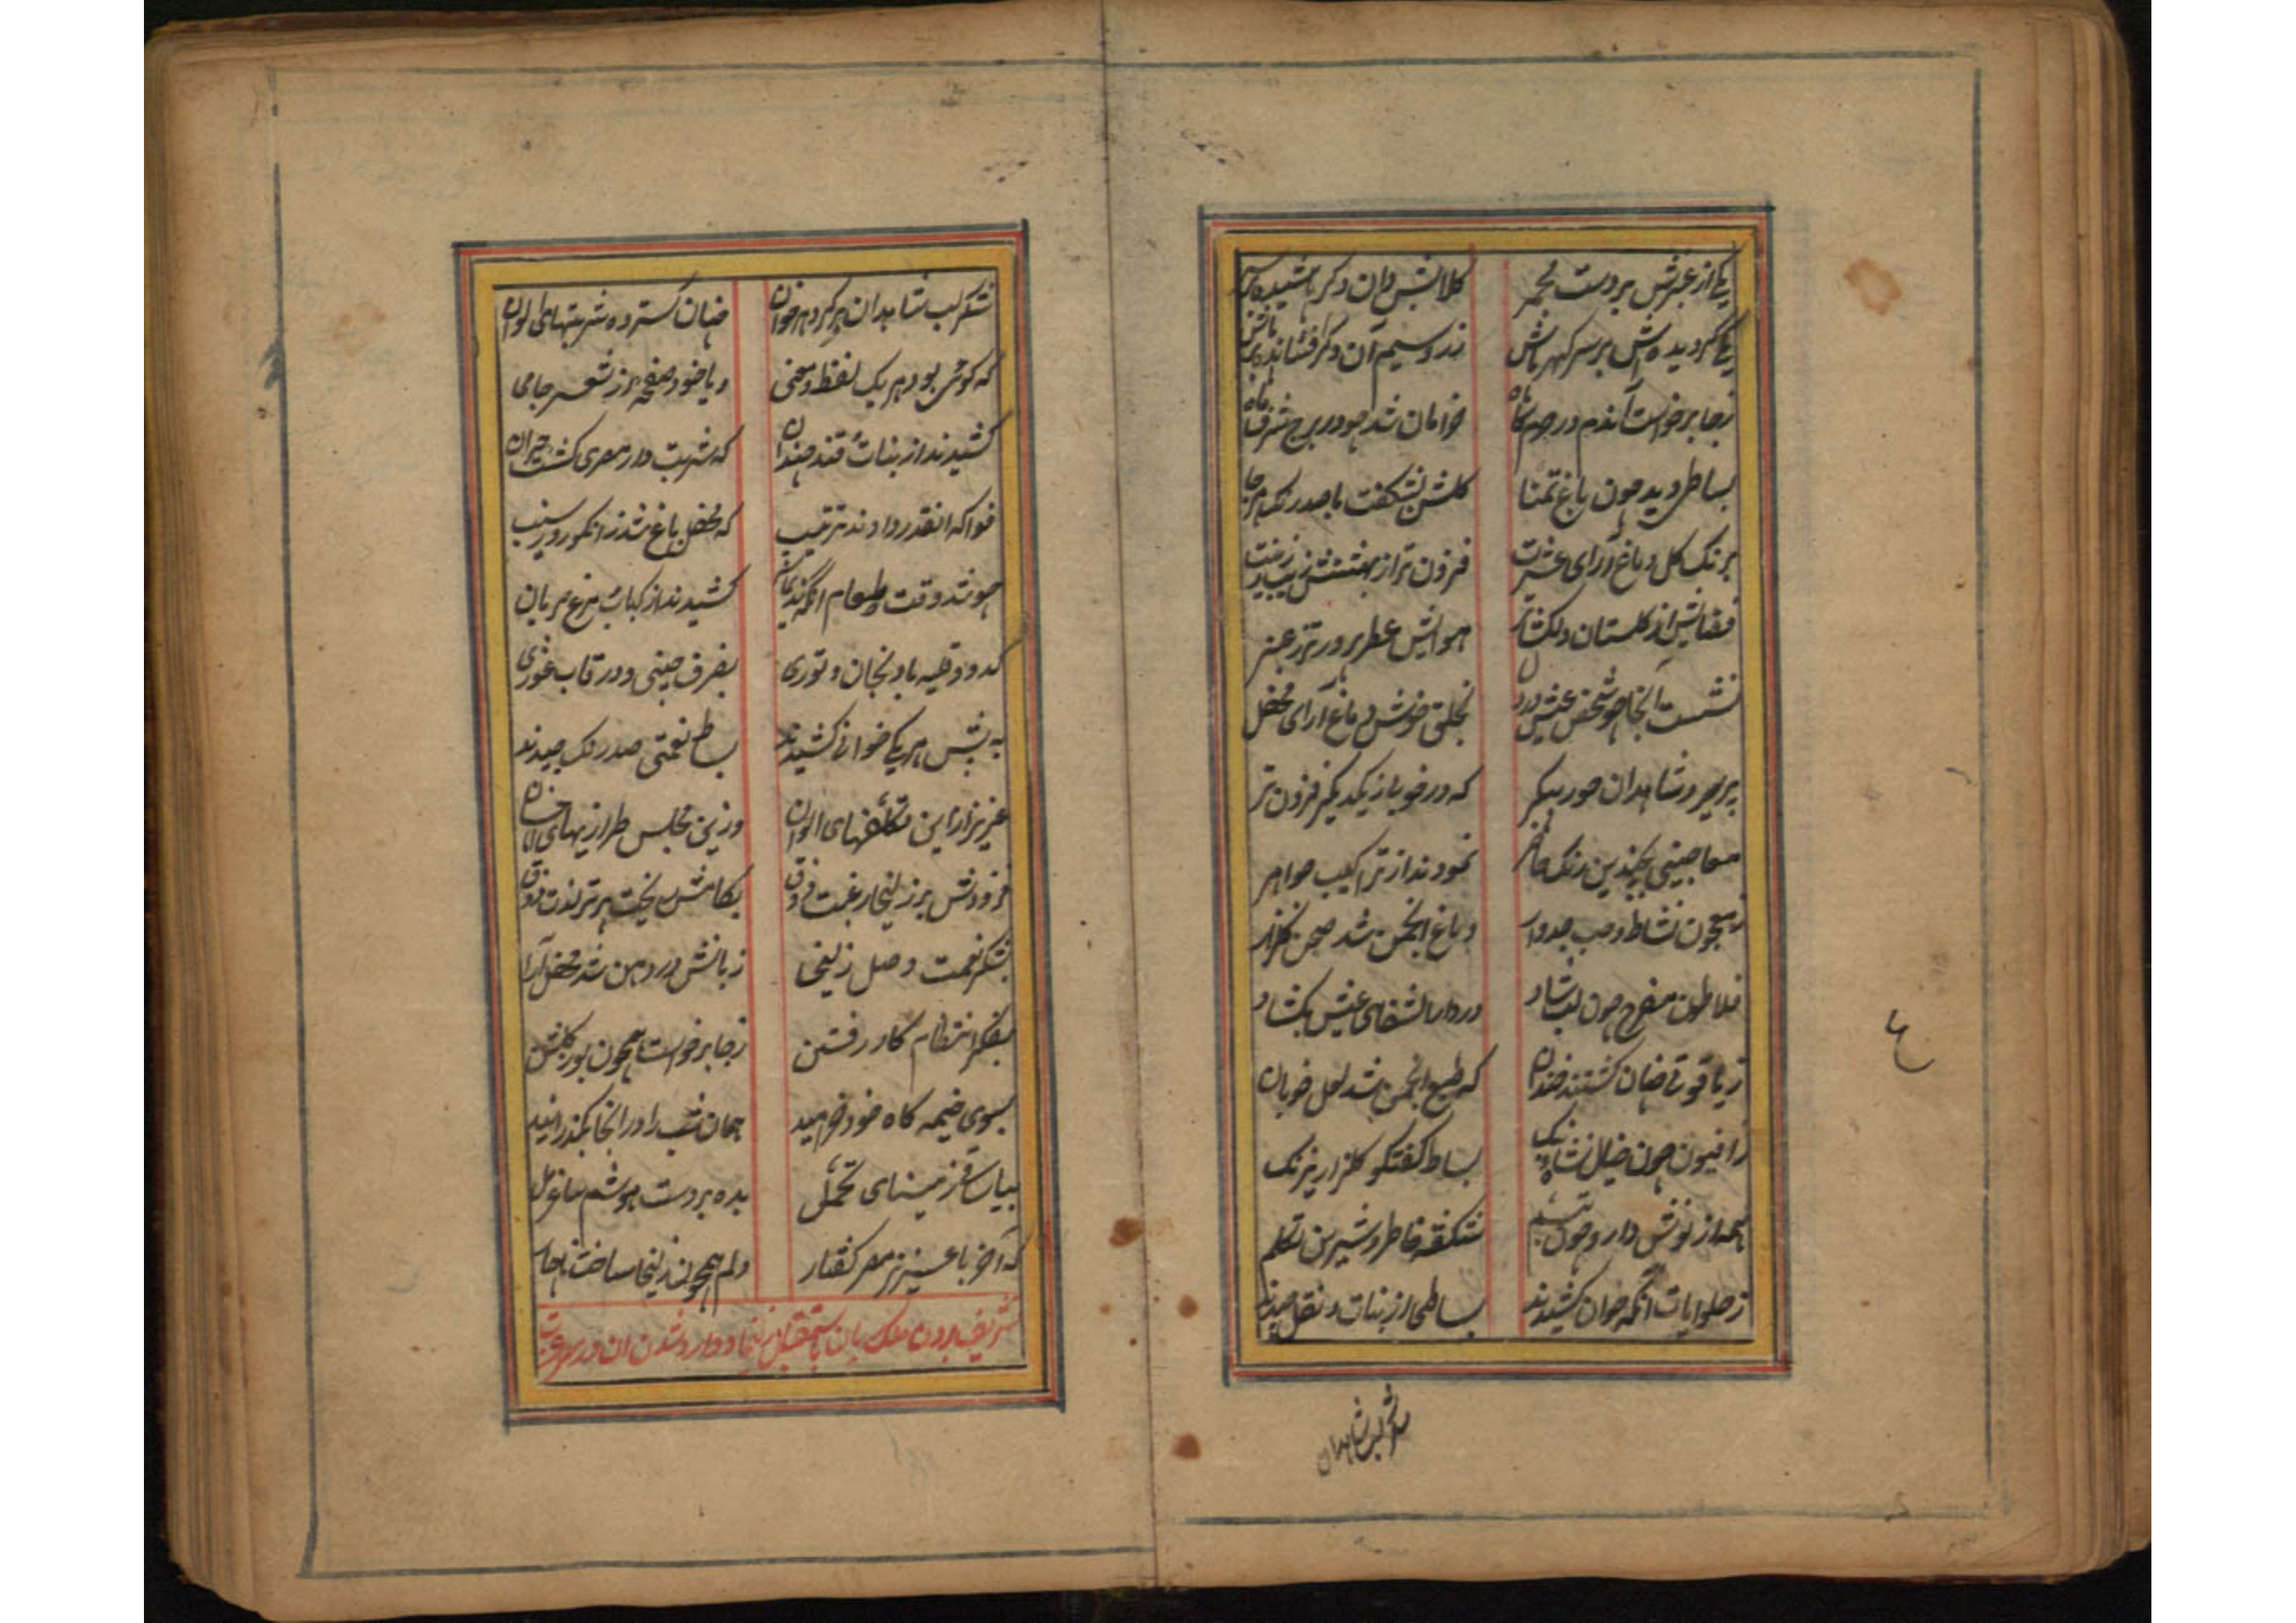 یکی از عنبرش بر دست مجمر گلابش دان دگر
یکی گردیده‌اش بر سر گهر پاش زر و سیم آن دگر افشانده
ز جا برخواست آندم در حرم گاه خرامان شد چو در برج شرف ماه
بساطی دید چون باغ تمنا گلشن بشکفت با صد رنگ هر جا
برنگ گل دماغ آرای عشرت فزون تر از بهشتش زیب و زینت
فضایش از گلستان دلکشاتر هوایش عطر پرورتر ز عنبر
نشست آنجا چو شخص عیش در دل بخلق خوش دماغ آرای محفل
پریرو شاهدان حور پیکر که در خوبی از یکدیگر فزون تر
معاجینی بچندین رنگ نمودند از تراکیب جواهر
ز معجون نشاط و حب جدوار دماغ انجمن شد صحن گلزار
فلاطون مفرح چون لب شاد در دار الشفای عیش بکشاد
ز یاقوتی چنان گشتند خندان که طبع انجمن شد لعل خوبان
ز افیون چون خیال نشاء بنگ بساط گفتگو گلزار نیرنگ
همه از نوش دارو چون تبسم شکفته خاطر و شیرین تکلم
ز حلوایات آنگه خوان کشیدند بساطی از نبات و نقل چیدند
شکر لب شاهدان
۴
شکر لب شاهدان پر کرد هر خوان چنان گسترده شربتهای الوان
که گوش بود هر یک لفظ و معنی و یا خود صفحه از شعر جامی
کشیدند از نبات قند چندان که شربت دار مصری گشت حیران
فواکه انقدر دادند ترتیب که محفل باغ شد ز انگور و سیب
چو شد وقت طعام کشیدند از کباب مرغ بریان
کدو و قلیه بادنجان و توری بظرف چینی و در قاب غوری
به پیش هر یکی خوانی کشیدند بساط نعمتی صد رنگ چیدند
عزیز از این تکلفهای الوان وزین مجلس طرازیهای
فزودش بر زلیخا رغبت ذوق بکامش ریخت برتر لذت ذوق
بشکر نعمت وصل زلیخا زبانش در دهن شد محفل آرا
بفکر انتظام کار رفتن ز جا برخواست همچون بو ز گلشن
بسوی خیمه گاه خود خرامید همان شب را در انجا بگذرانید
بیا ساقی ز مینای تحمل بده بر دست هوشم ساغر مل
که آخر با عزیز مصر گفتار دلم همچون زلیخا ساخت ناچار
تشریف بردن ملک ریان باستقبال زلیخا و وارد شدن آن در